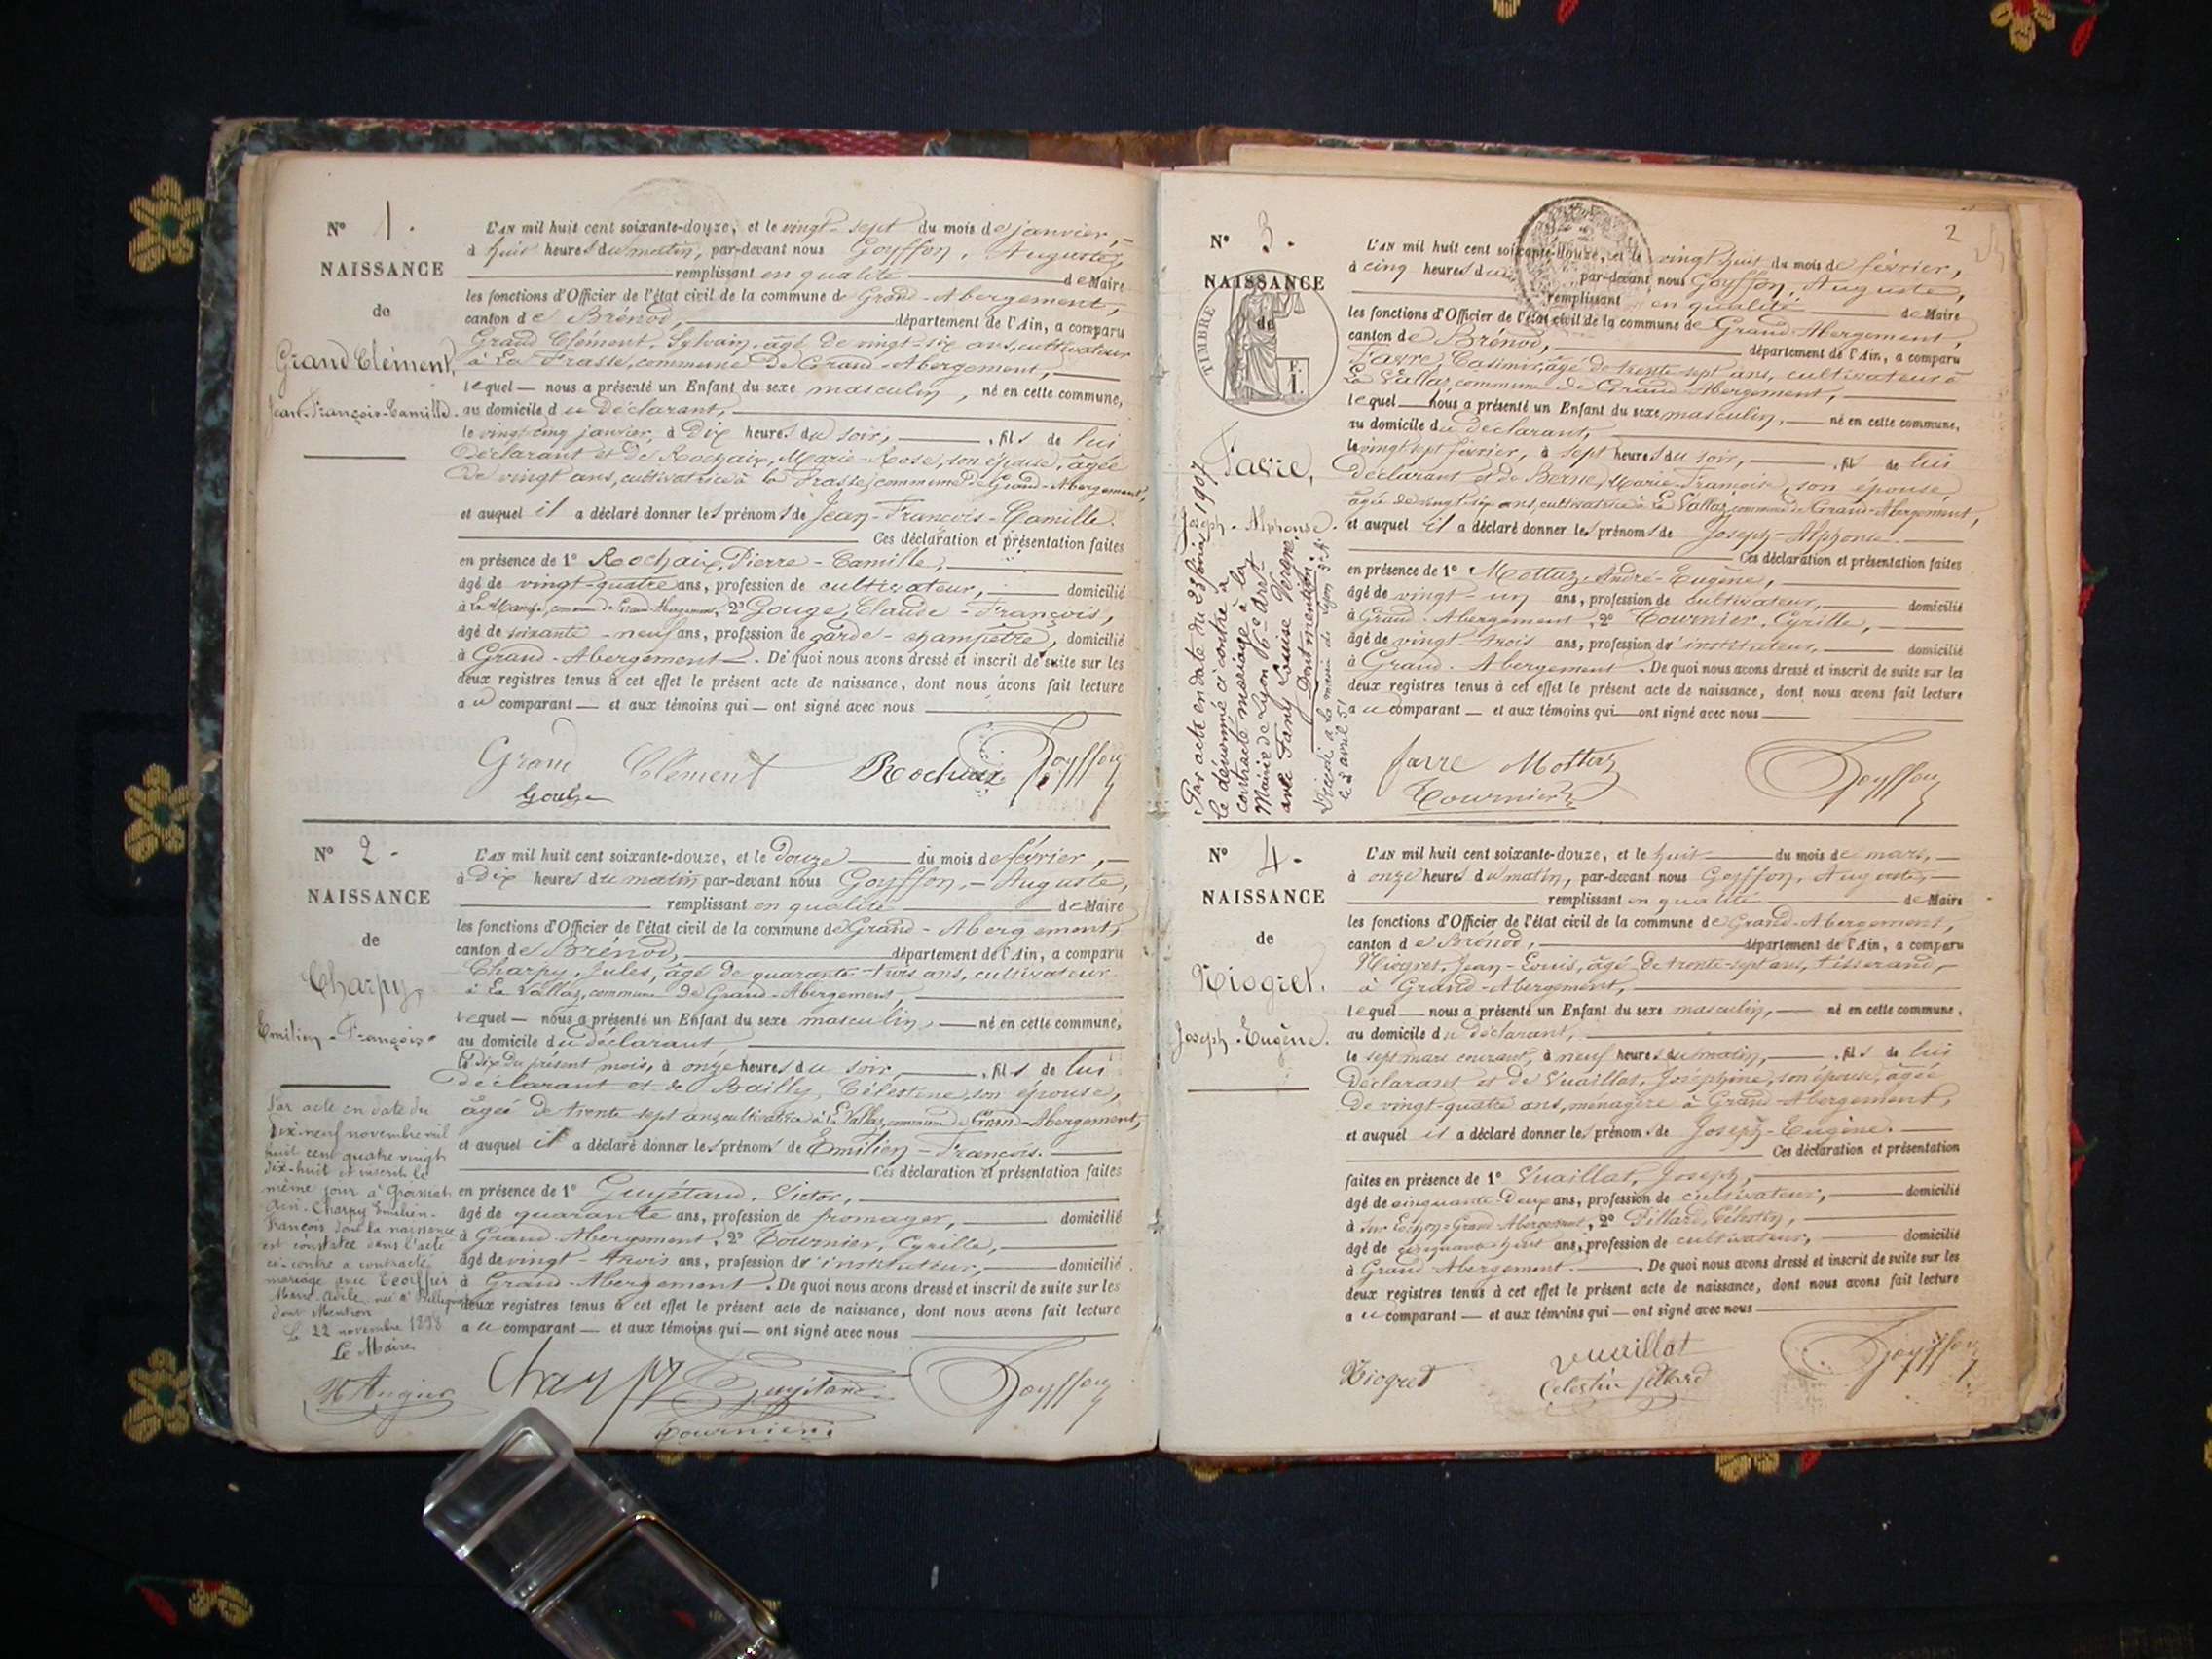 N° 1.
NAISSANCE
de
Grand Clément,
Jean-François-Camille.
L'AN mil huit cent soixante-douze, et le vingt-sept du mois de janvier,
à huit heures du matin, par-devant nous Goyffon, Auguste,
remplissant en qualité de Maire
les fonctions d'Officier de l'état civil de la commune de Grand-Abergement,
canton de Brénod, département de l'Ain, a comparu
Grand Clément, Sylvain, âgé de vingt-six ans, cultivateur
à La Frasse, commune de Grand-Abergement,
lequel nous a présenté un Enfant du sexe masculin, né en cette commune,
au domicile du déclarant,
le vingt cinq janvier, à dix heures du soir, fils de lui
déclarant et de Rochaix, Marie-Rose, son épouse, âgée
de vingt ans, cultivatrice à la Frasse, commune de Grand-Abergement,
et auquel il a déclaré donner les prénoms de Jean-François-Camille.
Ces déclaration et présentation faites
en présence de 1° Rochaix, Pierre-Camille,
âgé de vingt-quatre ans, profession de cultivateur, domicilié
à commune de Grand Abergement, 2° Gouge, Claude-François,
âgé de soixante-neuf ans, profession de garde-champêtre, domicilié
à Grand-Abergement. De quoi nous avons dressé et inscrit de suite sur les
deux registres tenus à cet effet le présent acte de naissance, dont nous avons fait lecture
au comparant et aux témoins qui ont signé avec nous
Grand Clément Rochaix Goyffon
Gouge
N° 2.
NAISSANCE
de
Charpy,
Emilien-François.
L'AN mil huit cent soixante-douze, et le douze du mois de février,
à dix heures du matin par-devant nous Goyffon, Auguste,
remplissant en qualité de Maire
les fonctions d'Officier de l'état civil de la commune de Grand-Abergement,
canton de Brénod, département de l'Ain, a comparu
Charpy, Jules, âgé de quarante-trois ans, cultivateur
à La Vallaz, commune de Grand-Abergement,
lequel nous a présenté un Enfant du sexe masculin, né en cette commune,
au domicile du déclarant
le dix du présent mois, à onze heures du soir, fils de lui
déclarant et de Bailly, Célestine, son épouse,
âgée de trente sept ans, cultivatrice à La Vallaz, commune de Grand-Abergement,
et auquel il a déclaré donner les prénoms de Emilien-François.
Ces déclaration et présentation faites
en présence de 1° Guyétand, Victor,
âgé de quarante ans, profession de fromager, domicilié
à Grand-Abergement, 2° Tournier, Cyrille,
âgé de vingt-trois ans, profession d'instituteur, domicilié
à Grand-Abergement. De quoi nous avons dressé et inscrit de suite sur les
deux registres tenus à cet effet le présent acte de naissance, dont nous avons fait lecture
au comparant et aux témoins qui ont signé avec nous
Par acte en date du
dix-neuf novembre mil
huit cent quatre vingt
dix-huit et inscrit le
même jour à
Ain. Charpy Emilien-
François dont la naissance
est constatée dans l'acte
ci-contre a contracté
mariage avec
Marie née à
dont Mention
Le 22 novembre 1898
Le Maire
Charpy Guyétand Goyffon
Tournier
2
N° 3.
NAISSANCE
de
TIMBRE
F.
1.
Favre,
Joseph-Alphonse.
L'AN mil huit cent soixante-douze, et le vingt huit du mois de février,
à cinq heures du par-devant nous Goyffon, Auguste,
remplissant en qualité de Maire
les fonctions d'Officier de l'état civil de la commune de Grand-Abergement,
canton de Brénod, département de l'Ain, a comparu
Favre, Casimir, âgé de trente-sept ans, cultivateur à
La Vallaz, commune de Grand-Abergement,
lequel nous a présenté un Enfant du sexe masculin, né en cette commune,
au domicile du déclarant,
le vingt sept février, à sept heures du soir, fils de lui
déclarant et de Berne, Marie-Françoise, son épouse
âgée de vingt-six ans, cultivatrice à La Vallaz, commune de Grand-Abergement,
et auquel il a déclaré donner les prénoms de Joseph-Alphonse.
Ces déclaration et présentation faites
en présence de 1° Mottaz, André-Eugène,
âgé de vingt-un ans, profession de cultivateur, domicilié
à Grand-Abergement, 2° Tournier, Cyrille,
âgé de vingt-trois ans, profession d'instituteur, domicilié
à Grand-Abergement. De quoi nous avons dressé et inscrit de suite sur les
deux registres tenus à cet effet le présent acte de naissance, dont nous avons fait lecture
au comparant et aux témoins qui ont signé avec nous
Par acte en date du 23 février 1907
le dénommé ci contre a
contracté mariage à la
Mairie de Lyon 6e Ardt
avec Fany Louise Vergne.
Dont mention.
Décédé à la mairie de Lyon 3e A
le 2 avril 51
favre Mottaz Goyffon
Tournier
N° 4.
NAISSANCE
de
Niogret.
Joseph-Eugène.
L'AN mil huit cent soixante-douze, et le huit du mois de mars,
à onze heures du matin, par-devant nous Goyffon, Auguste,
remplissant en qualité de Maire
les fonctions d'Officier de l'état civil de la commune de Grand-Abergement,
canton de Brénod, département de l'Ain, a comparu
Niogret, Jean-Louis, âgé de trente-sept ans, tisserand,
à Grand-Abergement,
lequel nous a présenté un Enfant du sexe masculin, né en cette commune,
au domicile du déclarant,
le sept mars courant, à neuf heures du matin, fils de lui
déclarant et de Vuaillat, Joséphine, son épouse, âgée
de vingt-quatre ans, ménagère à Grand-Abergement,
et auquel il a déclaré donner les prénoms de Joseph-Eugène.
Ces déclaration et présentation
faites en présence de 1° Vuaillat, Joseph,
âgé de cinquante-deux ans, profession de cultivateur, domicilié
à Grand-Abergement, 2° Pillard, Célestin,
âgé de cinquante-huit ans, profession de cultivateur, domicilié
à Grand Abergement. De quoi nous avons dressé et inscrit de suite sur les
deux registres tenus à cet effet le présent acte de naissance, dont nous avons fait lecture
au comparant et aux témoins qui ont signé avec nous
Niogret vuaillat Goyffon
Celestin pillard